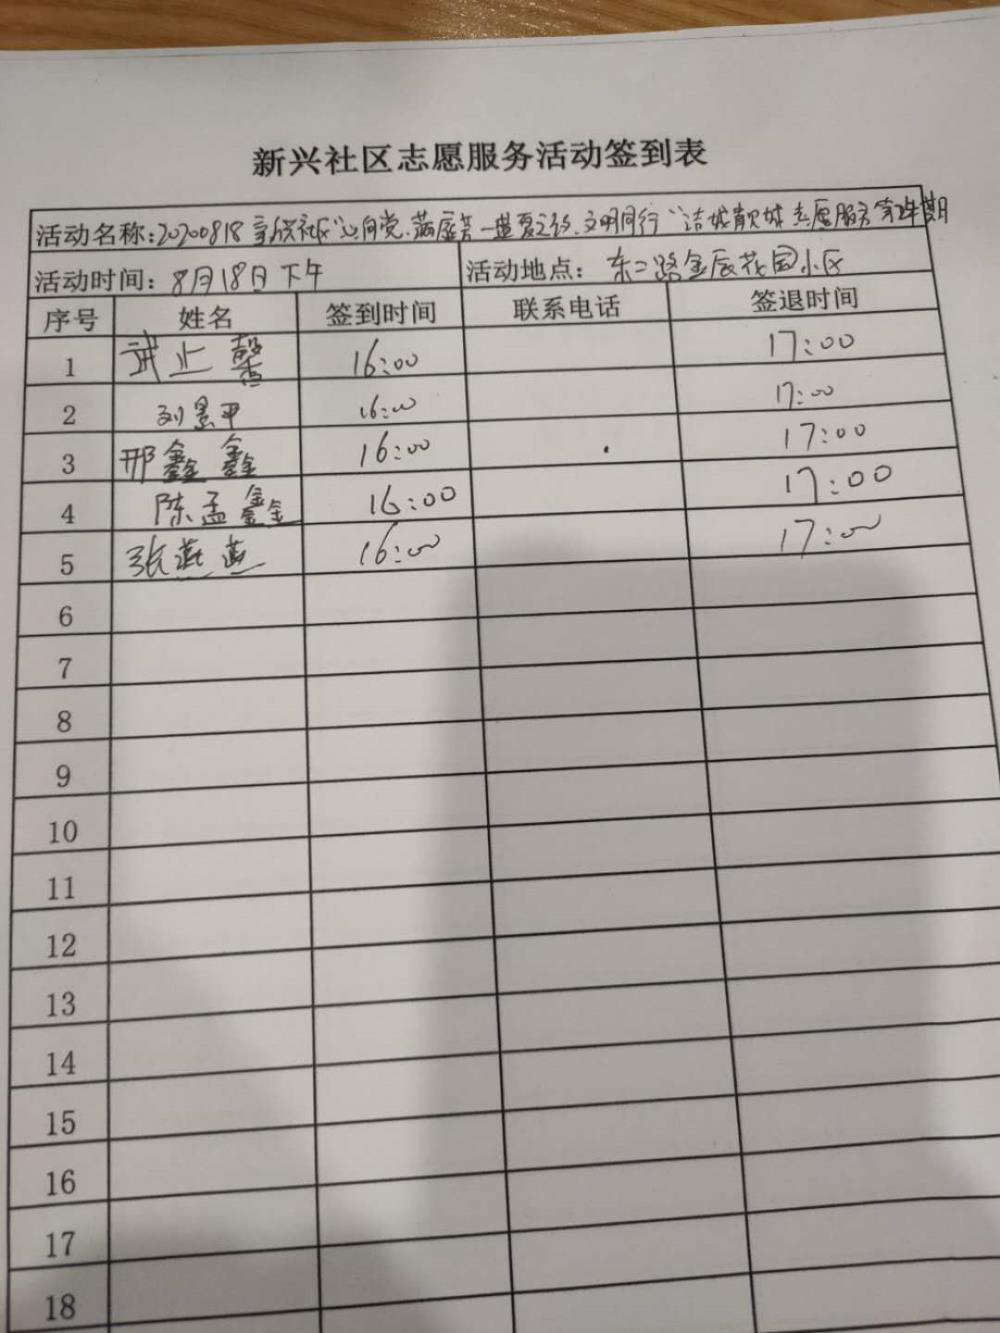 新兴社区志愿服务活动签到表
活动名称:20200818 社区"心向党. 盛夏之约.文明同行""洁城靓城志愿服务第 期
活动时间: 8月18日下午 活动地点: 东二路金辰花园小区
序号 姓名 签到时间 联系电话 签退时间
1 武止馨 16:00 17:00
2 刘景甲 16:00 17:00
3 邢鑫鑫 16:00 17:00
4 陈孟鑫 16:00 17:00
5 张燕燕 16:00 17:00
6
7
8
9
10
11
12
13
14
15
16
17
18